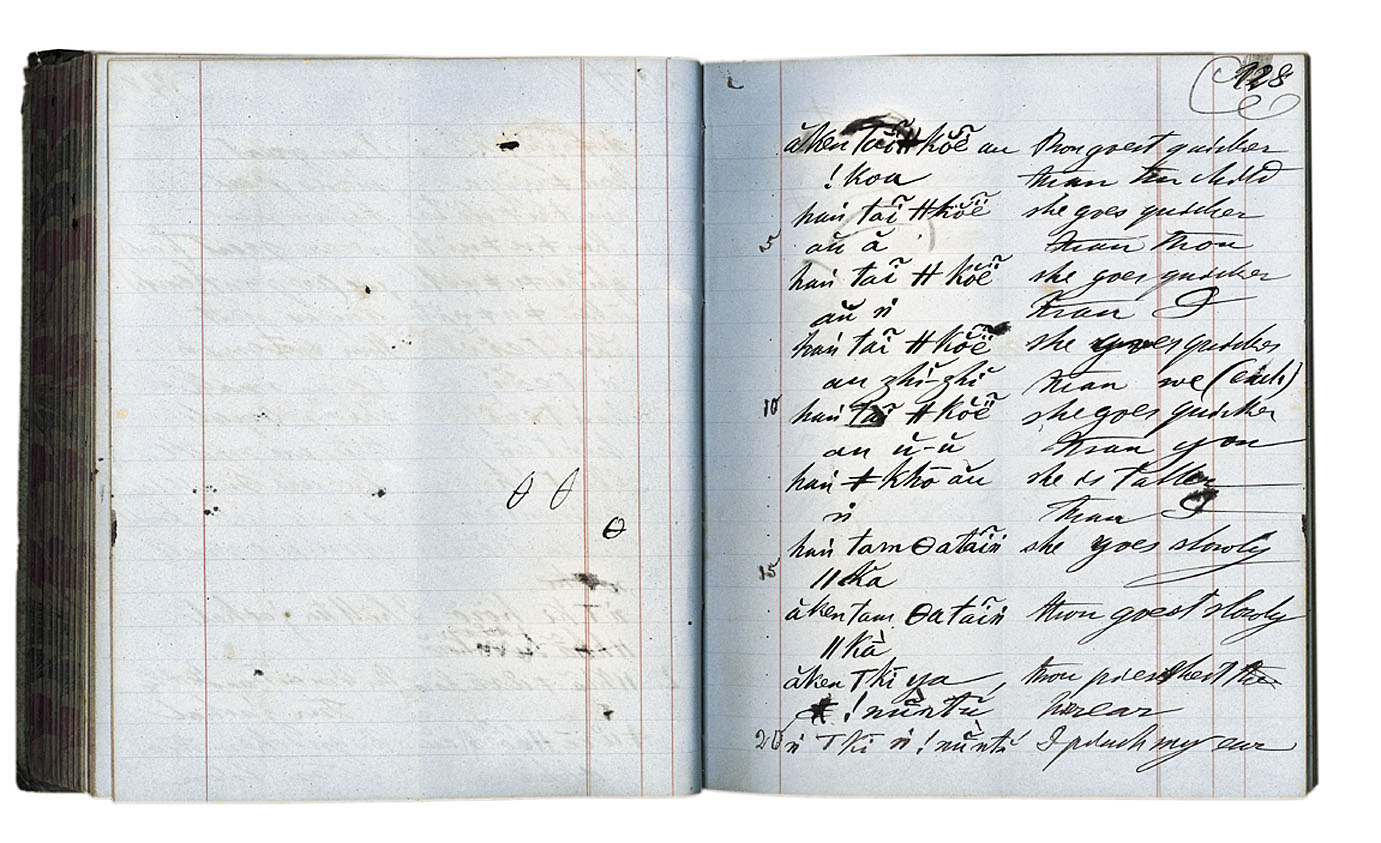 ϴ ϴ
ϴ
128
ăken taĩ ǂkŏẽ au Thou goest quicker
!koa than the child
hań taĩ ǂkŏẽ she goes quicker
5 aŭ ă than thou
hań taĩ ǂkŏẽ she goes quicker
aŭ ń than I
hań taĩ ǂkŏẽ she goes quicker
au ghĭ-ghĭ than we (excl.)
10 hań taĩ ǂkŏẽ she goes quicker
au ŭ-ŭ than you
hań ǂkhō aŭ she is taller
ń than I
hań tam ϴatăiń she goes slowly
15 ǁkă
ăken tam ϴatăiń thou goest slowly
ǁkă
ăken Tki ya, thou
!nŭntŭ her ear
20 ń Tki ń !nŭntŭ I pinch my ear